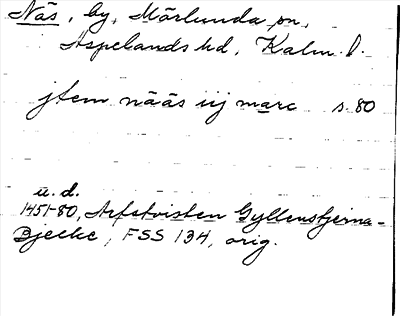 Näs, by, Mörlunda sn,
Aspelands hd, Kalm. l.
jtem nääs iij marc s. 80
u. d.
1451-80, Arfstvisten Gyllenstjerna-
Bjelke, FSS 134, orig.